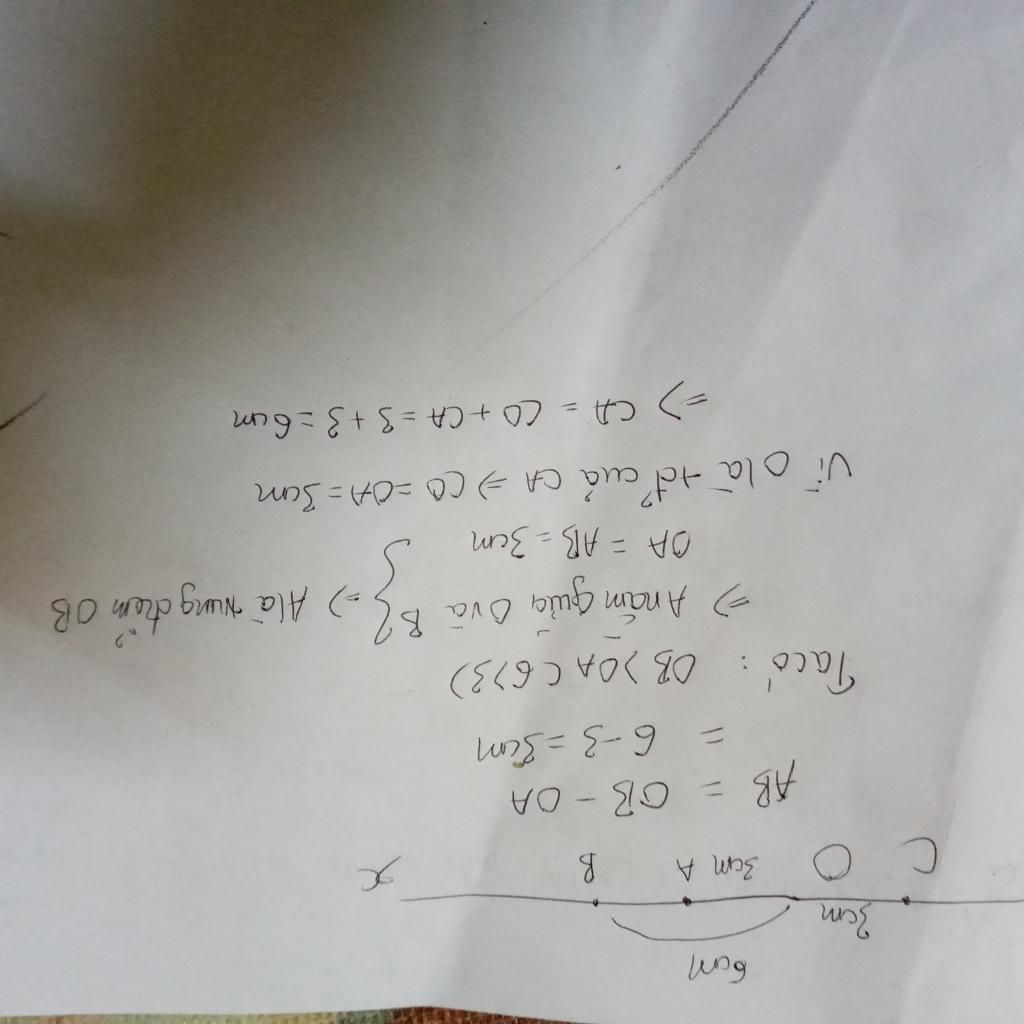 6cm
3cm
C O 3cm A B x
AB = OB - OA
= 6 - 3 = 3cm
Ta có: OB > OA (6>3)
=> A nằm giữa O và B } => A là trung điểm OB
OA = AB = 3cm
Vì O là tđ của CA => CO = OA = 3cm
=> CA = CO + CA = 3 + 3 = 6cm